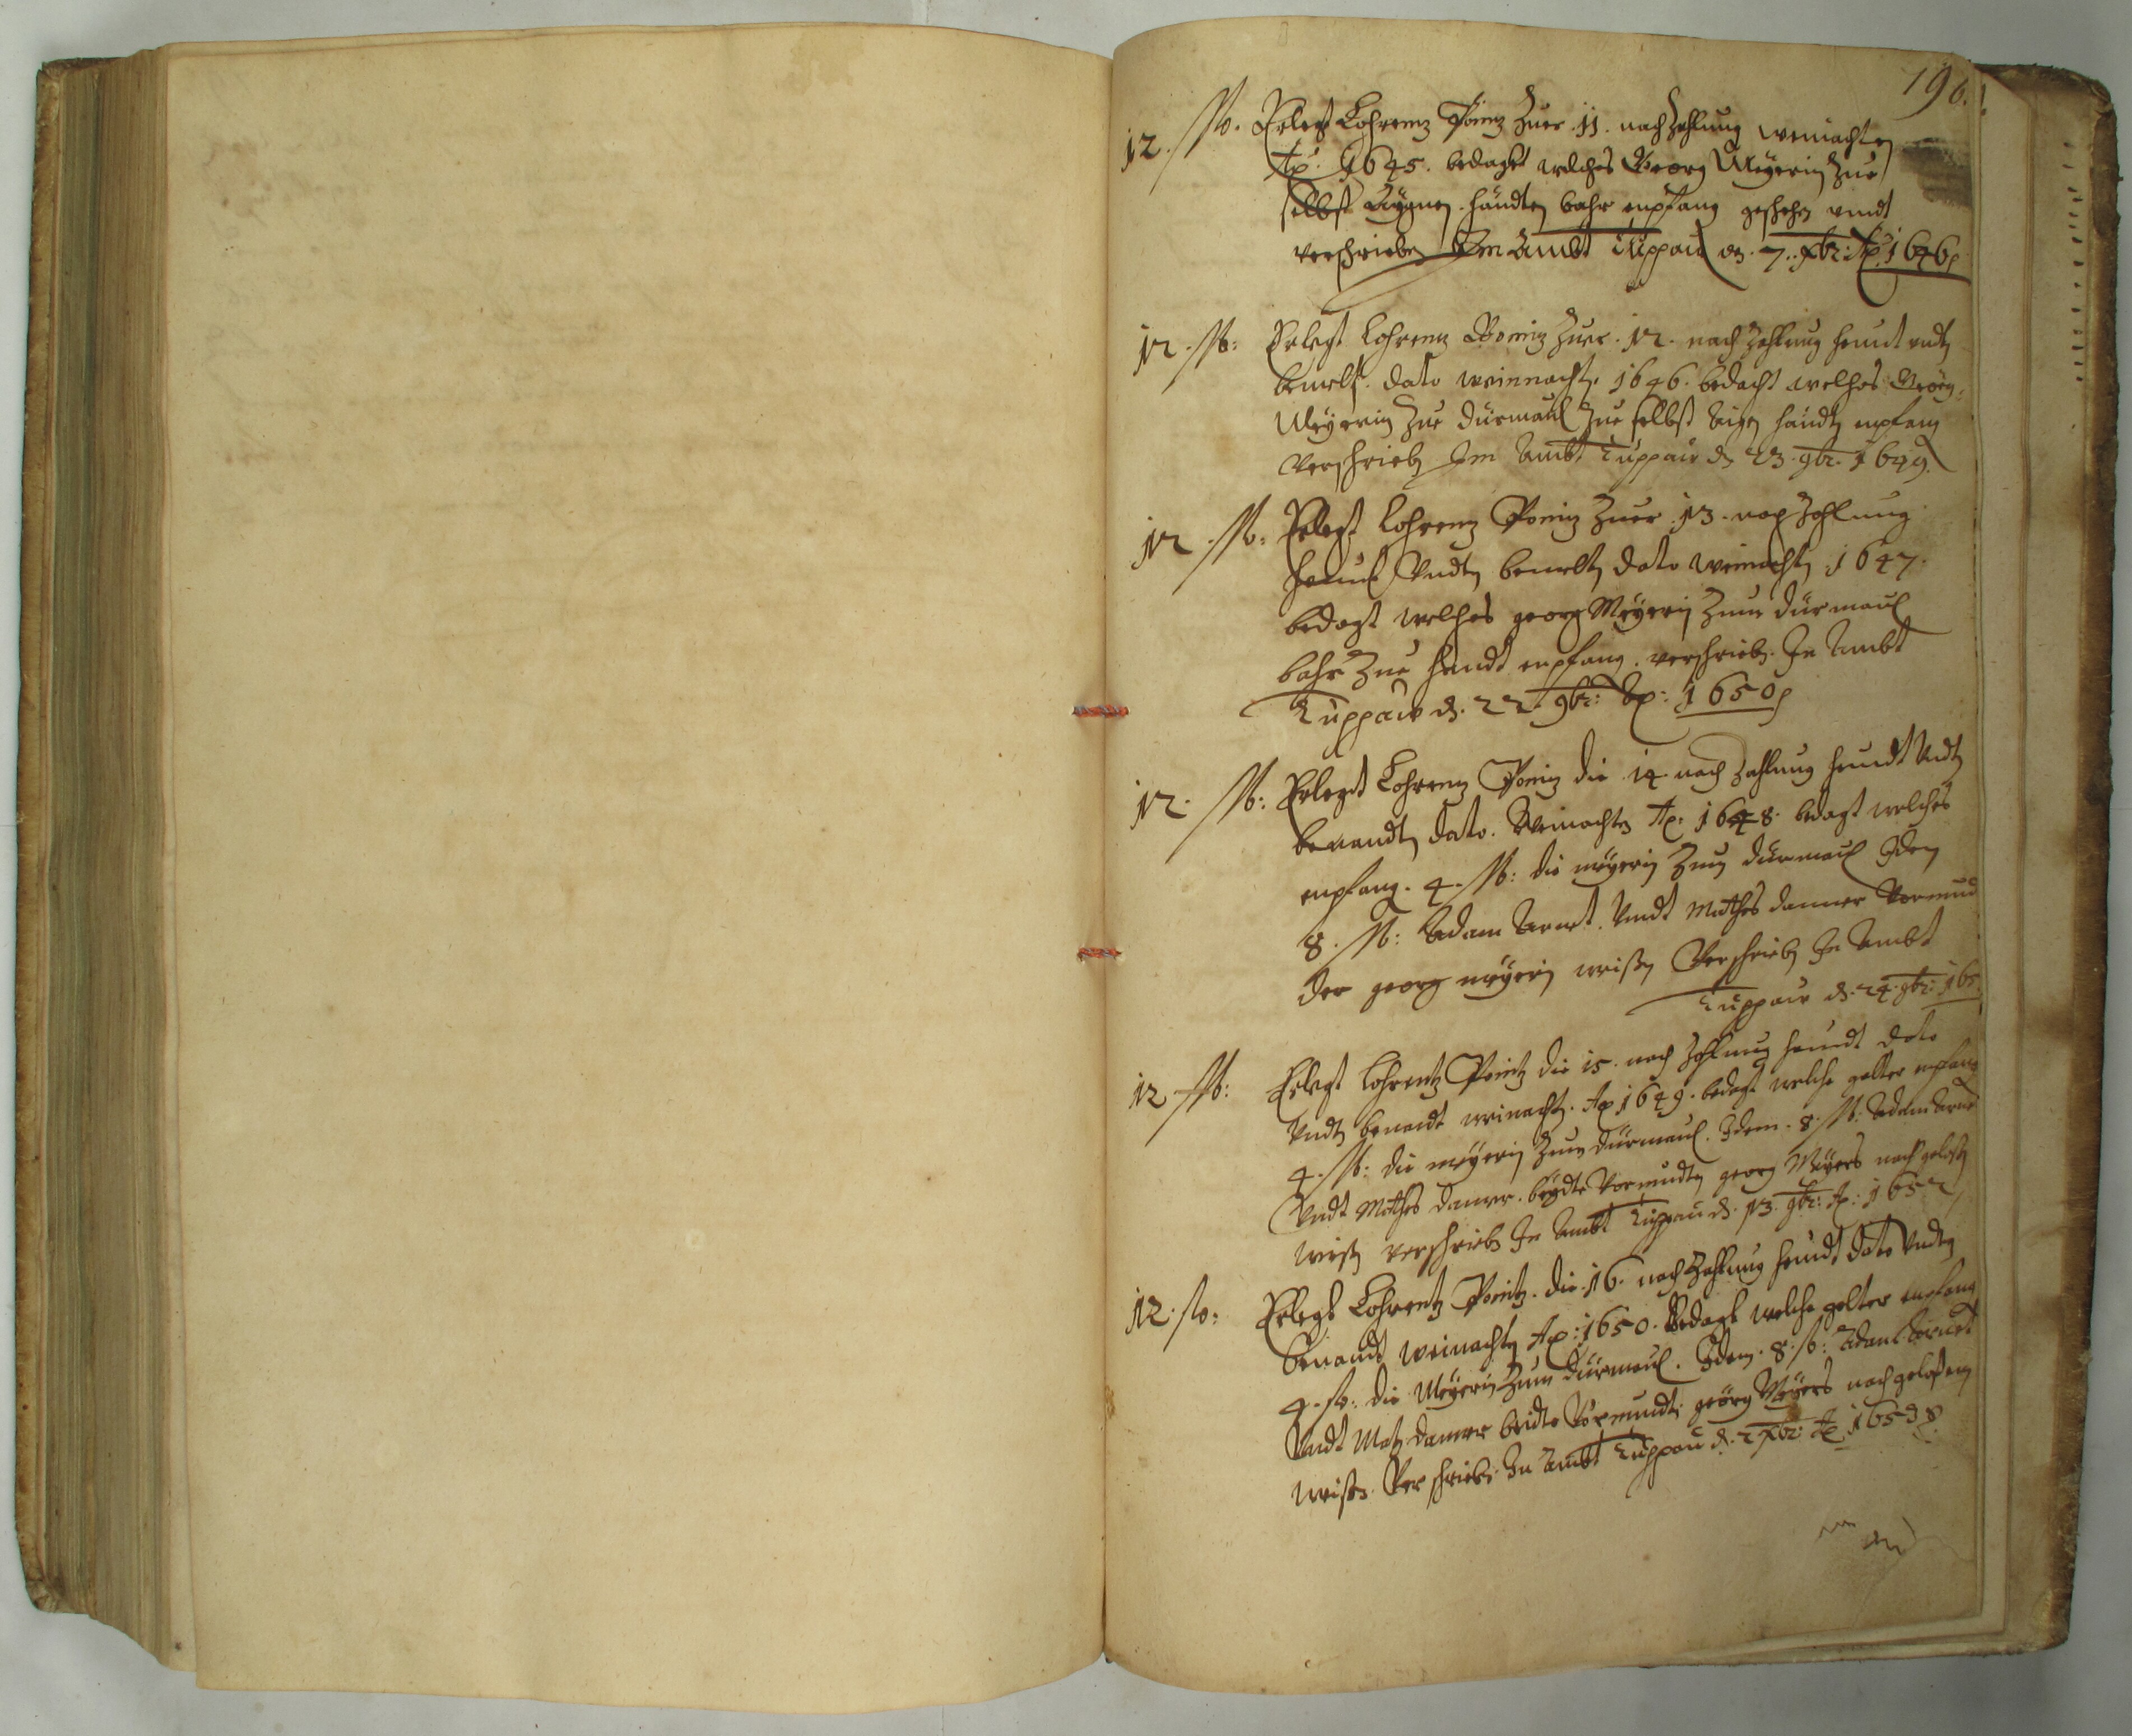 196.
12. ßo. Erlegt Lohrenz Pöniz Zuer .11. nachzahlung weinachten
Ao: 1645. bedaget welches Georg Meÿerin Zue
selbst Eÿgnen handten bahr empfang geschehen vndt
verschrieben Im Ambt Luppau den .7. Xbr: Ao 1646
12. ßo: Erlegt Lohrenz Poniz Zuer .12. nach Zahlung heundt vndten
benelt. dato weinnachten 1646. bedacht welches Georg
Meÿerin Zue Dürmaul Zue selbst Eigen handten empfang
verschrieben Im Ambt Luppau den 23. 9br. 1649.
12. ßo: Erlegt Lohrenz Poniz Zuer .13. nach Zahlung
heundt Vndten benelten dato weinachten 1647.
bedagt welches georg Meÿerin Zum Dürmaul
bahr Zue handt empfang. verschrieben In Ambt
Luppau den. 22. 9br: Ao: 1650
12. ßo: Erlegt Lohrenz Poniz die 14 nach Zahlung heundt Vndten
benandten dato. Weinachten Ao: 1648. bedagt welches
empfang. 4. ßo: die meÿerin Zum Dürmaul Idem
8. ßo: Adam Arnet. Vndt Mathes Danner Vormund
der georg meÿerin weisen Verschrieben In Ambt
Luppau den. 24. 9br: 165
12 ßo: Erlegt Lohrentz Pönitz die 15. nach Zahlung heundt dato
Vndten benandt weinachten. Ao 1649. bedagt welche gelter empfang
4. ßo: die meÿerin Zum Dürmaul. Idem. 8. ßo: Adam Arnet
Vndt Mathes Danner. beÿdte Vormundten georg Meÿers nach gelasten
weisen verschrieben In Ambt Luppau den. 13. 9br: Ao: 1652
12. ßo: Erlegt Lohrentz Pönitz. die .16. nach Zahlung heundt dato Vndten
benandt weinachten Ao: 1650. Bedagt welche gelter empfang
4. ßo: die Meÿerin Zum Dürmaul. Idem. 8. ßo: Adam Arnet
Vndt Matz Danner beidte Vormundt. georg Meÿers nach gelaßenen
weisen. Verschrieben In Ambt Luppau den. 2 Xbr: Ao 1653